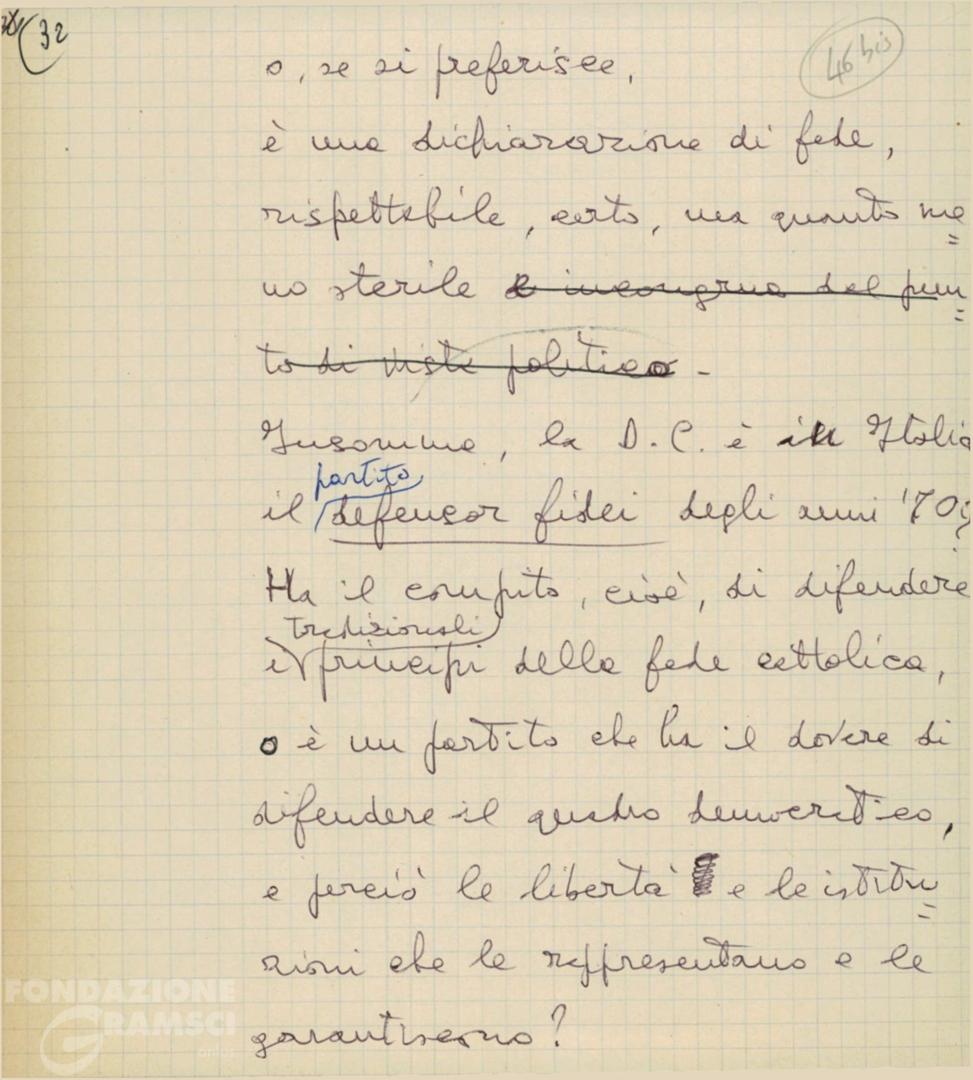 32
46 bis
o, se si preferisce,
è una dichiarazione di fede,
rispettabile, certo, ma quanto me=
no sterile e incongrua dal pun=
to di vista politico -
Insomma, la D.C. è in Italia
partito
il defensor fidei degli anni '70?
Ha il compito, cioè, di difendere
tradizionali
i principi della fede cattolica,
o è un partito che ha il dovere di
difendere il quadro democratico,
e perciò le libertà e le istitu=
zioni che le rappresentano e le
garantiscono?
FONDAZIONE
GRAMSCI
onlus